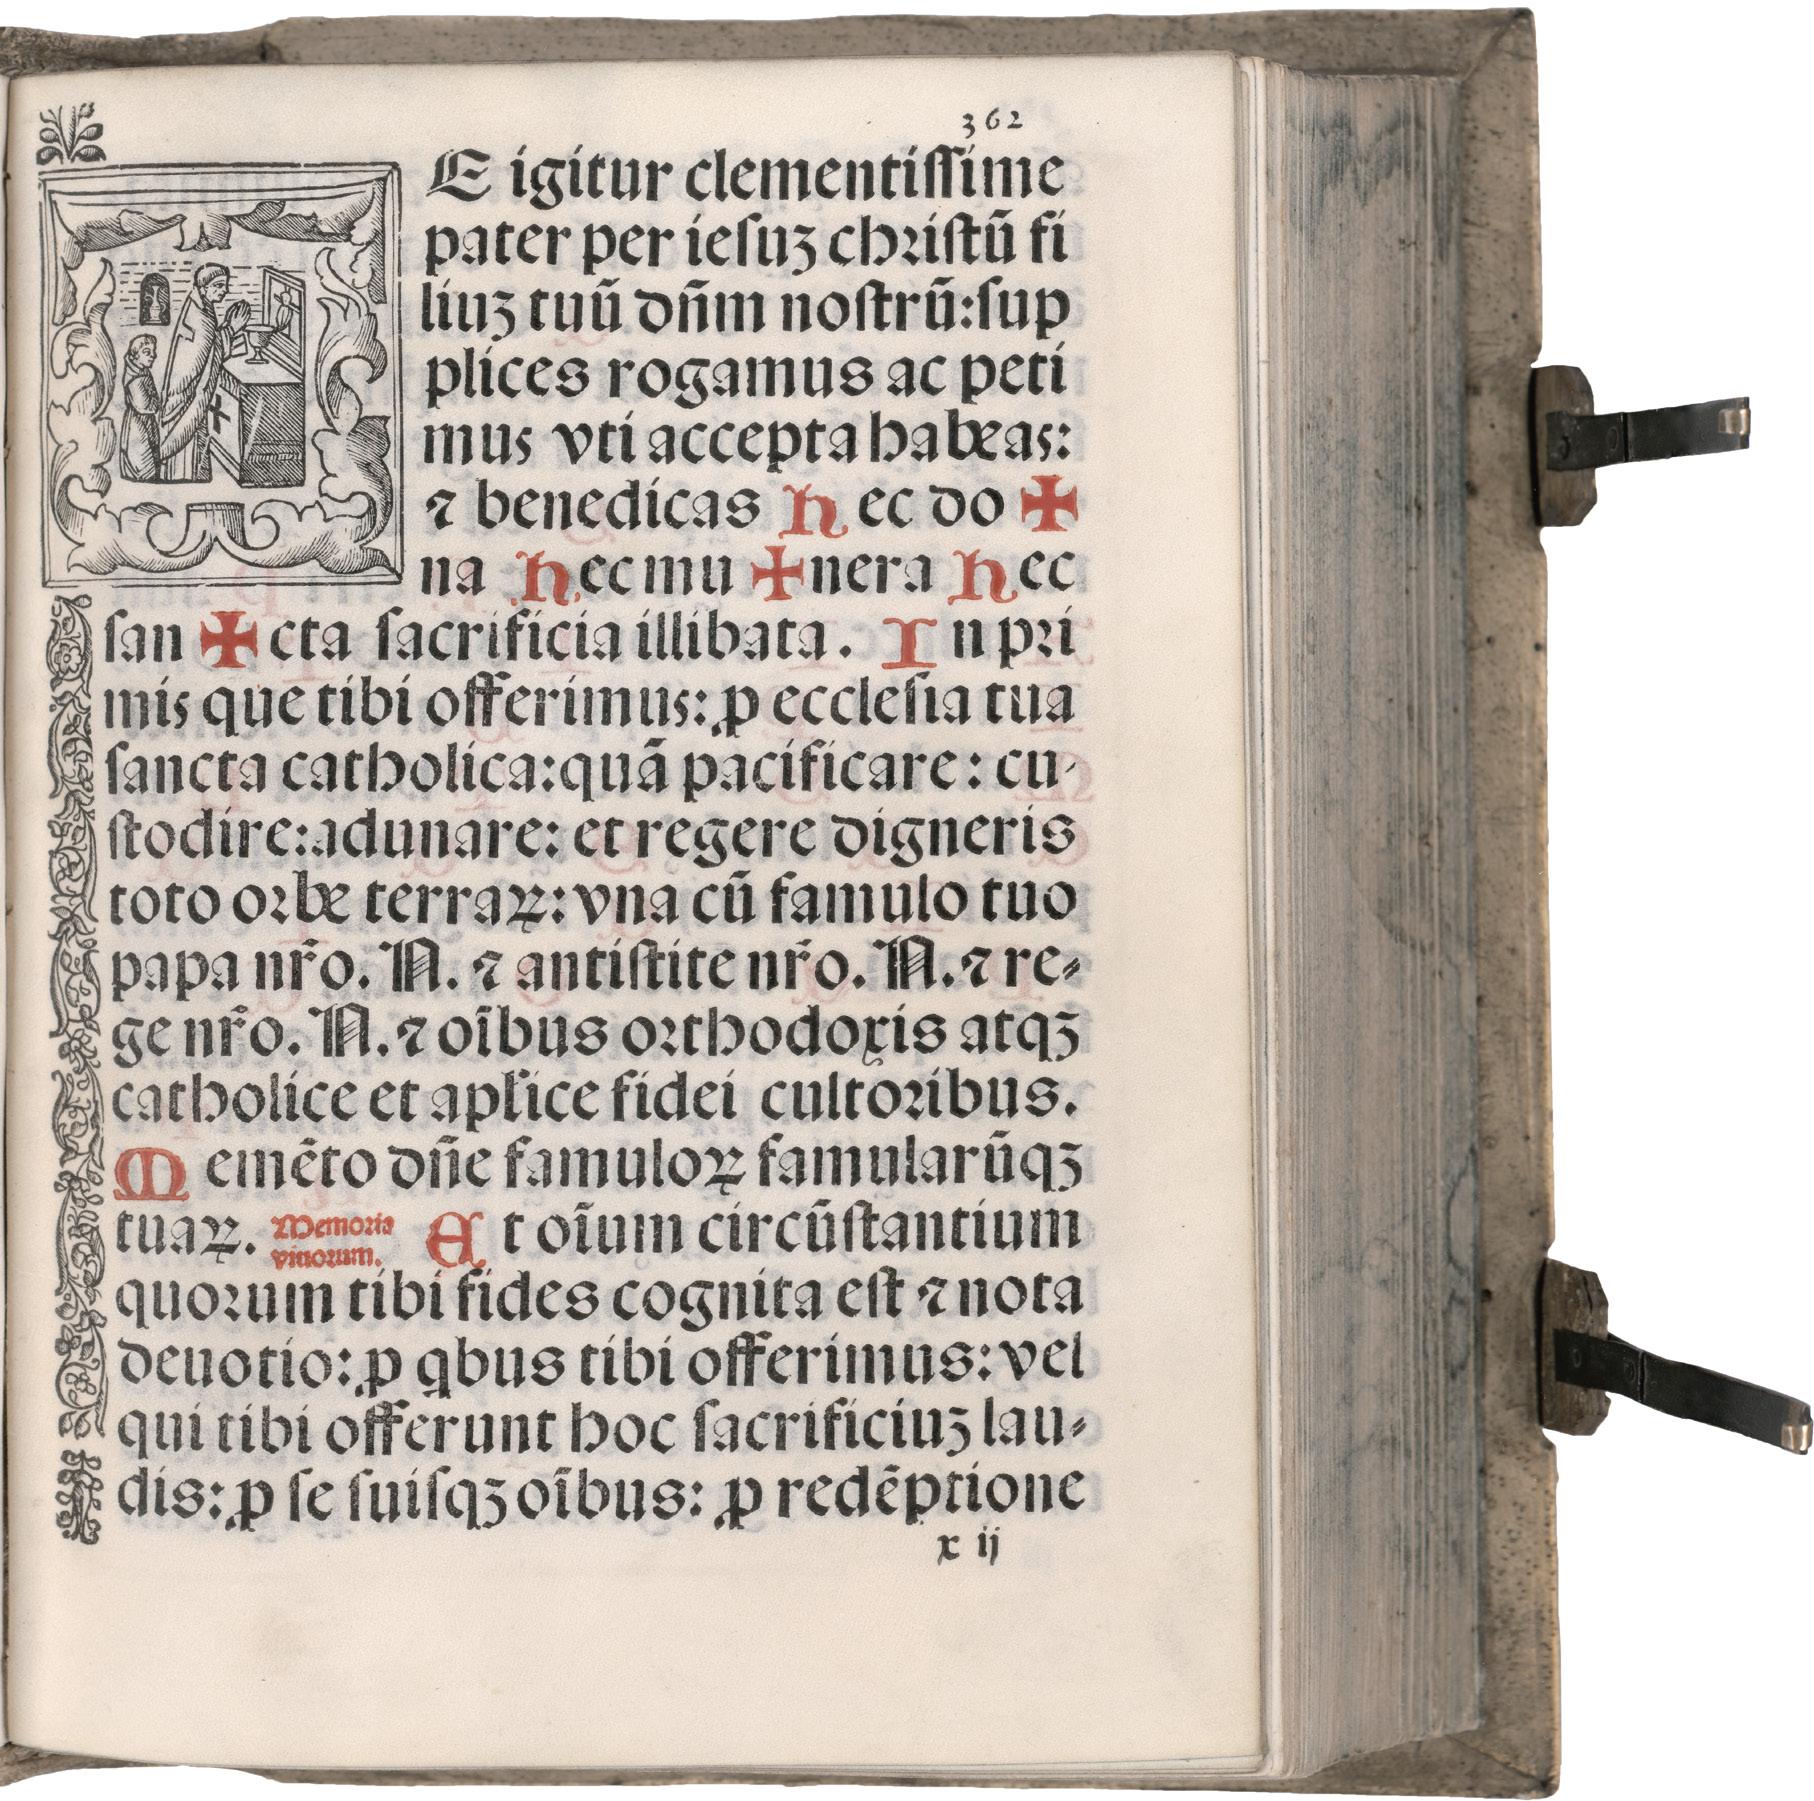 362
E igitur clementiſſime
pater per ieſuꝫ chꝛiſtū fi
liuꝫ tuū dn̄m noſtrū:ſup
plices rogamus ac peti
mus vti accepta habeas:
⁊ benedicas hec do ✠
na hec mu ✠ nera hec
ſan ✠ cta ſacrificia illibata. In pꝛi
mis que tibi offerimus: ꝓ eccleſia tua
ſancta catholica:quā pacificare: cu-
ſtodire:adunare: et regere digneris
toto oꝛbe terraꝝ: vna cū famulo tuo
papa nr̄o. N. ⁊ antiſtite nr̄o. N. ⁊ re⸗
ge nr̄o. N. ⁊ oībus oꝛthodoxis atqꝫ
catholice et apl̄ice fidei cultoꝛibus.
Memēto dn̄e famuloꝝ famularūqꝫ
tuaꝝ. Memoꝛia
viuoꝛum. Et oīum circūſtantium
quoꝛum tibi fides cognita eſt ⁊ nota
deuotio: ꝓ qbus tibi offerimus: vel
qui tibi offerunt hoc ſacrificiuꝫ lau⸗
dis: ꝓ ſe ſuiſqꝫ oībus: ꝓ redēptione
x ij